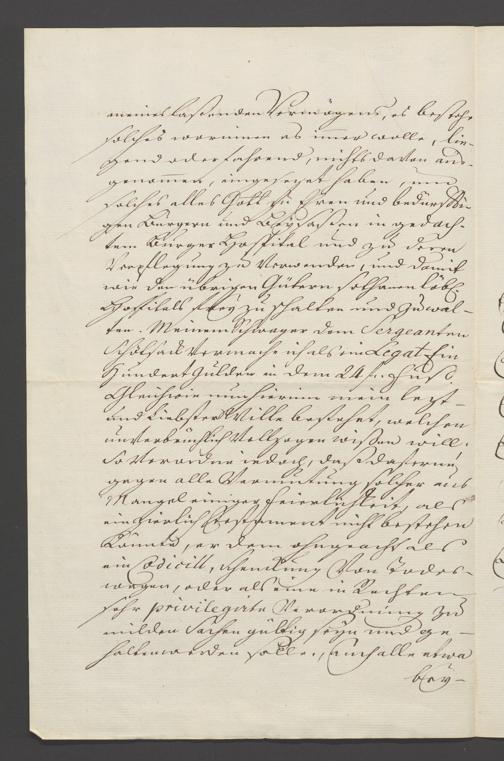 meines laßenden Vermögens, es bestehe
solches worinnen es immer wolle, lie-
gend oder fahrend, nichts davon aus-
genommen, eingesezet haben, um
solches alles Gott zu Ehren und bedürffti-
gen Burgern und Beysaßen in gedach-
tem Burger Hospital und zu deren
Verpflegung zu verwenden, und damit
wie den übrigen Gütern solchanen löbl.
Hospitals frey zu schalten und zu wal-
ten. Meinem Schwager dem Sergeanten
vermache ich als ein Legat Ein
Hundert Gulden in dem 24 fl. Fuß.
Gleichwie nun hierinn mein lezt-
und liebster Wille bestehet, welchen
unverbrüchlich vollzogen wißen will.
So verordne jedoch, daß daferne
gegen alle Vermutung solcher aus
Mangel einiger Feierlichkeit, als
ein zierlich Testament nicht bestehen
könnte, er dem ohngeacht als
ein Codicill, Schenkung von Todes-
wegen, oder als eine in Rechten
sehr privilegirte Verordnung zu
milden Sachen gültig seyn und ge-
halten werden solle., Auch alle etwa
bey-